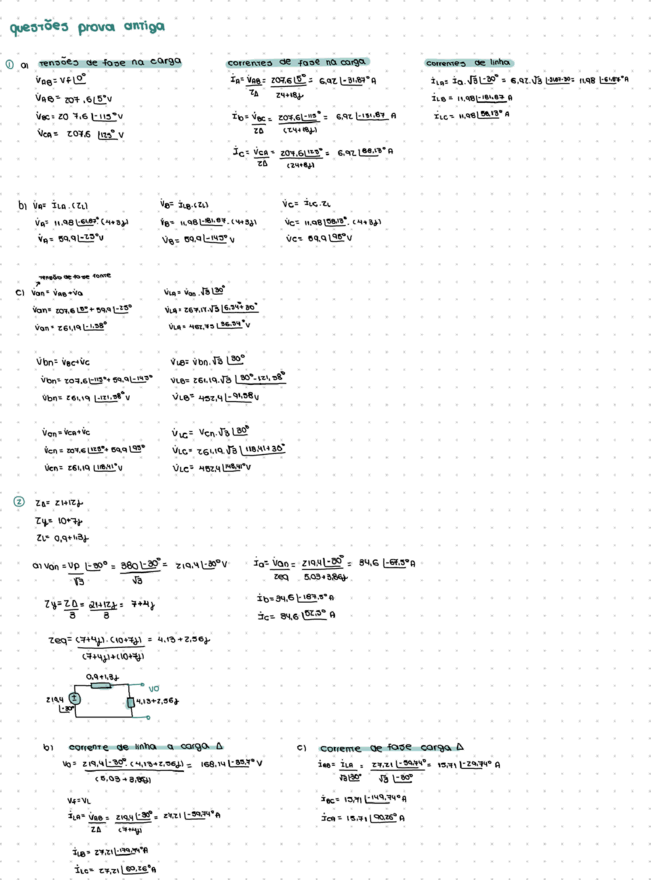 questões prova antiga
① a) tensões de fase na carga
V̇AB = Vf|0°
V̇AB = 207,6|5° V
V̇BC = 207,6 |-115° V
V̇CA = 207,6 |125° V
correntes de fase na carga
İA = V̇AB/ZΔ = 207,6|5°/24+18j = 6,92 |-31,87° A
İb = V̇BC/ZΔ = 207,6|-115°/(24+18j) = 6,92 |-151,87 A
İC = V̇CA/ZΔ = 207,6|125°/(24+18j) = 6,92|88,13° A
correntes de linha
İLA = İa.√3|-30° = 6,92.√3 |-31,87-30 = 11,98 |-61,87° A
İLB = 11,98|-181,87 A
İLC = 11,98|58,13° A
b) V̇A = İLA.(ZL)
V̇A = 11,98|-61,87° (4+3j)
V̇A = 59,9|-25° V
V̇B = İLB.(ZL)
V̇B = 11,98|-181,87.(4+3j)
V̇B = 59,9|-145° V
V̇C = İLC.ZL
V̇C = 11,98|58,13°.(4+3j)
V̇C = 59,9|95° V
tensão de fase fonte
c) V̇an = V̇AB+V̇a
V̇an = 207,6|5° + 59,9|-25°
V̇an = 261,19|-1,58°
V̇LA = V̇an.√3|30°
V̇LA = 267,17.√3 |6,54+30°
V̇LA = 462,75 |36,54° V
V̇bn = V̇BC+V̇C
V̇bn = 207,6|-115° + 59,9|-145°
V̇bn = 261,19 |-121,58° V
V̇LB = V̇bn.√3 |30°
V̇LB = 261,19.√3 |30°-121,58°
V̇LB = 452,4|-91,58 V
V̇cn = V̇CA+V̇C
V̇cn = 207,6|125° + 59,9|95°
V̇cn = 261,19 |118,41° V
V̇LC = Vcn.√3|30°
V̇LC = 261,19.√3 |118,41+30°
V̇LC = 452,4|148,41° V
② ZΔ = 21+12j
Zy = 10+7j
ZL = 0,9+1,3j
a) Van = Vp/√3 |-30° = 380|-30°/√3 = 219,4|-30° V
Zy = ZΔ/3 = 21+12j/3 = 7+4j
Zeq = (7+4j).(10+7j)/(7+4j)+(10+7j) = 4,13+2,56j
İa = V̇an/Zeq = 219,4|-30°/5,03+3,86j = 34,6|-67,5° A
İb = 34,6|-187,5° A
İc = 34,6 |52,5° A
0,9+1,3j
VO
219,4 |-30°
4,13+2,56j
b) corrente de linha a carga Δ
Vo = 219,4|-30°.(4,13+2,56j)/(5,03+3,86j) = 168,14|-35,7° V
Vf = VL
İLA = V̇AB/ZΔ = 219,4|-30°/(7+4j) = 27,21|-59,74° A
İLB = 27,21|-179,74° A
İLC = 27,21|60,26° A
c) corrente de fase carga Δ
İAB = İLA/√3|30° = 27,21|-59,74°/√3 |-30° = 15,71|-29,74° A
İBC = 15,71 |-149,74° A
İCA = 15,71 |90,26° A